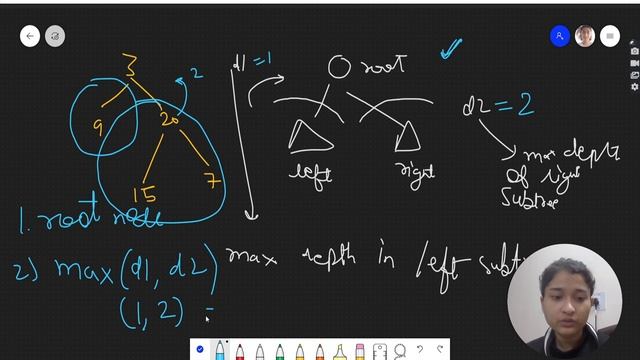 3
9
20
2
15
7
d1 = 1
root
left
right
d2 = 2
max depth
of right
subtree
1. root node
2) max (d1, d2)
(1, 2) =
max depth in left subt